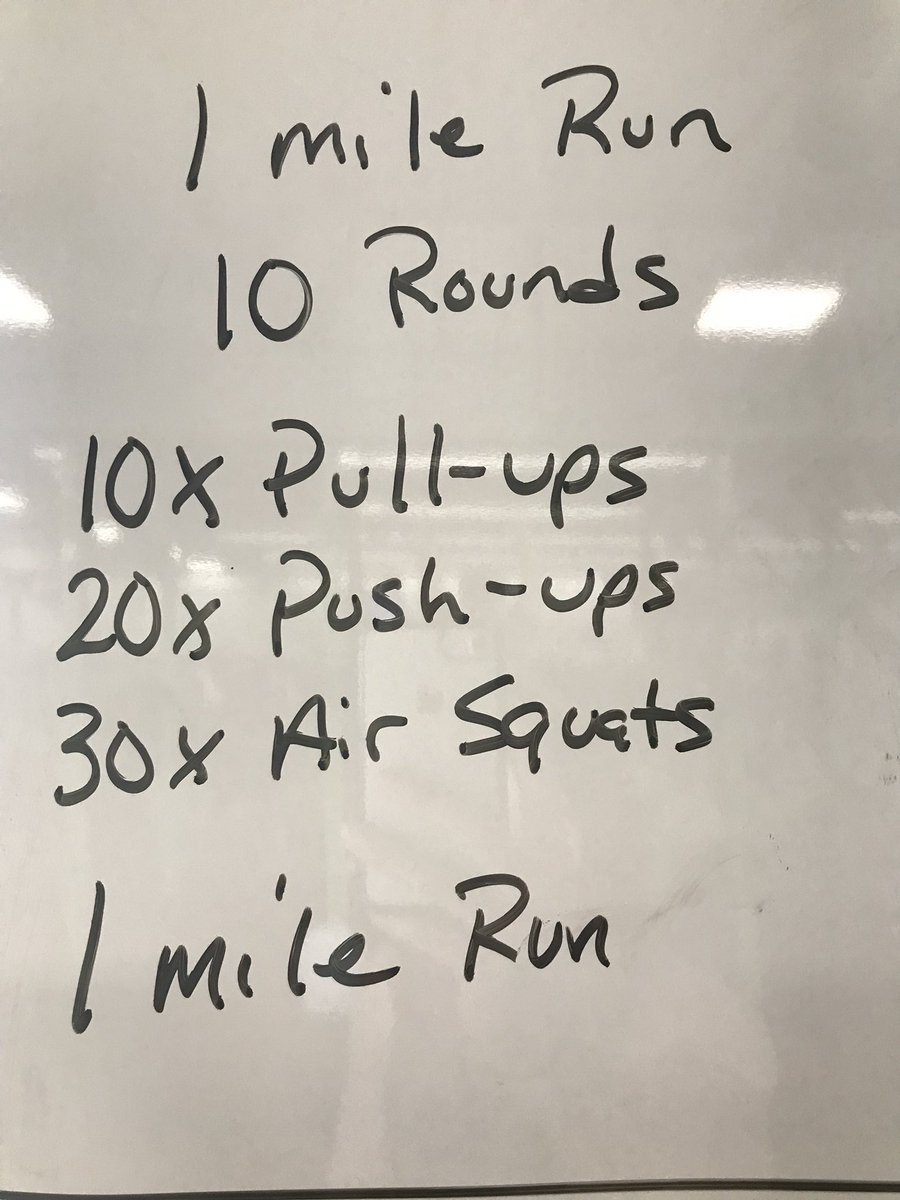 1 mile Run
10 Rounds
10x Pull-ups
20x Push-ups
30x Air Squats
1 mile Run